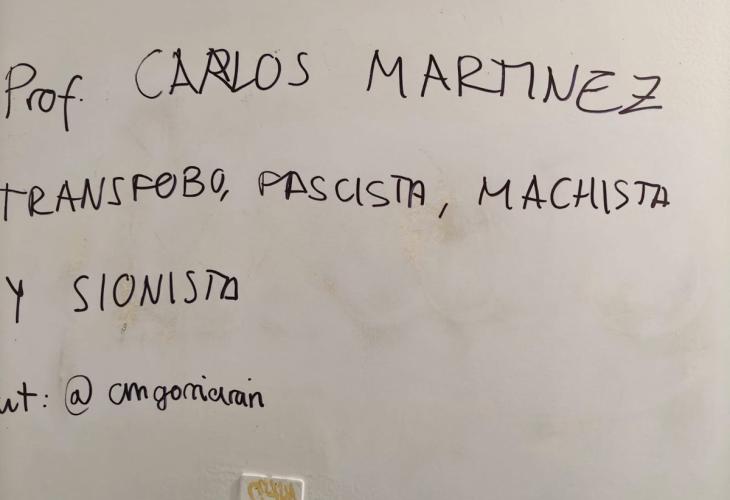 Prof. CARLOS MARTINEZ
TRANSFOBO, FASCISTA, MACHISTA
Y SIONISTA
ut: @ cmgorriaran